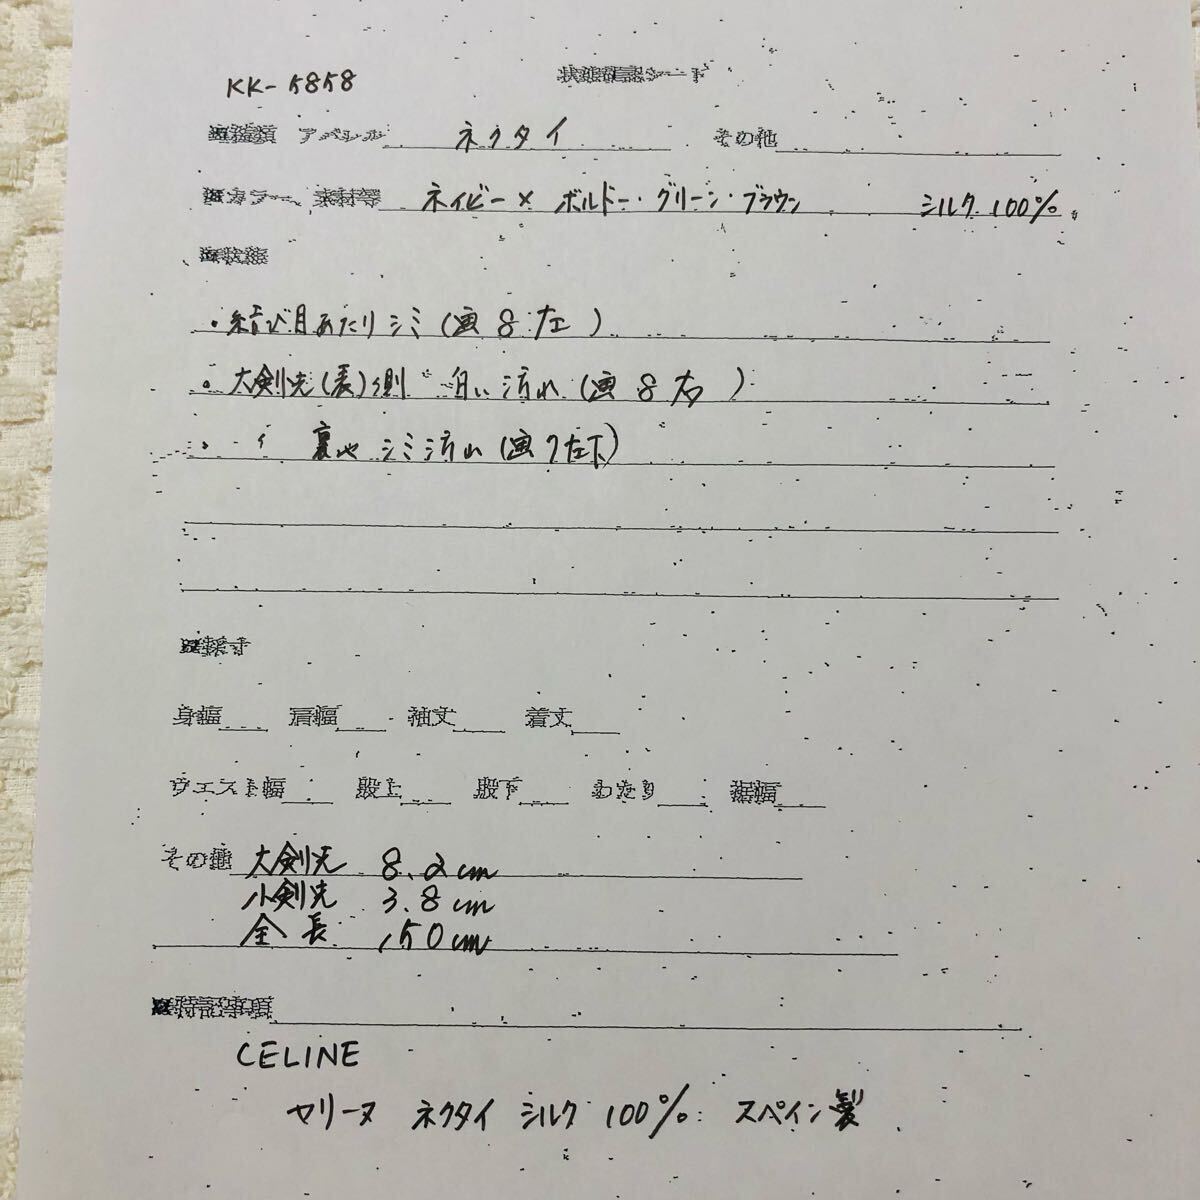 状態確認シート
KK-5858
■種類 アパレル ネクタイ その他
■カラー、素材等 ネイビー×ボルドー・グリーン・ブラウン シルク100%
■状態
・結び目あたりシミ(画8左)
・大剣先(表)側 白い汚れ(画8右)
・ 〃 裏地シミ汚れ(画7左下)
■採寸
身幅 肩幅 袖丈 着丈
ウエスト幅 股上 股下 わたり 裾幅
その他 大剣先 8.2cm
小剣先 3.8cm
全長 150cm
■特記事項
CELINE
セリーヌ ネクタイ シルク100% スペイン製